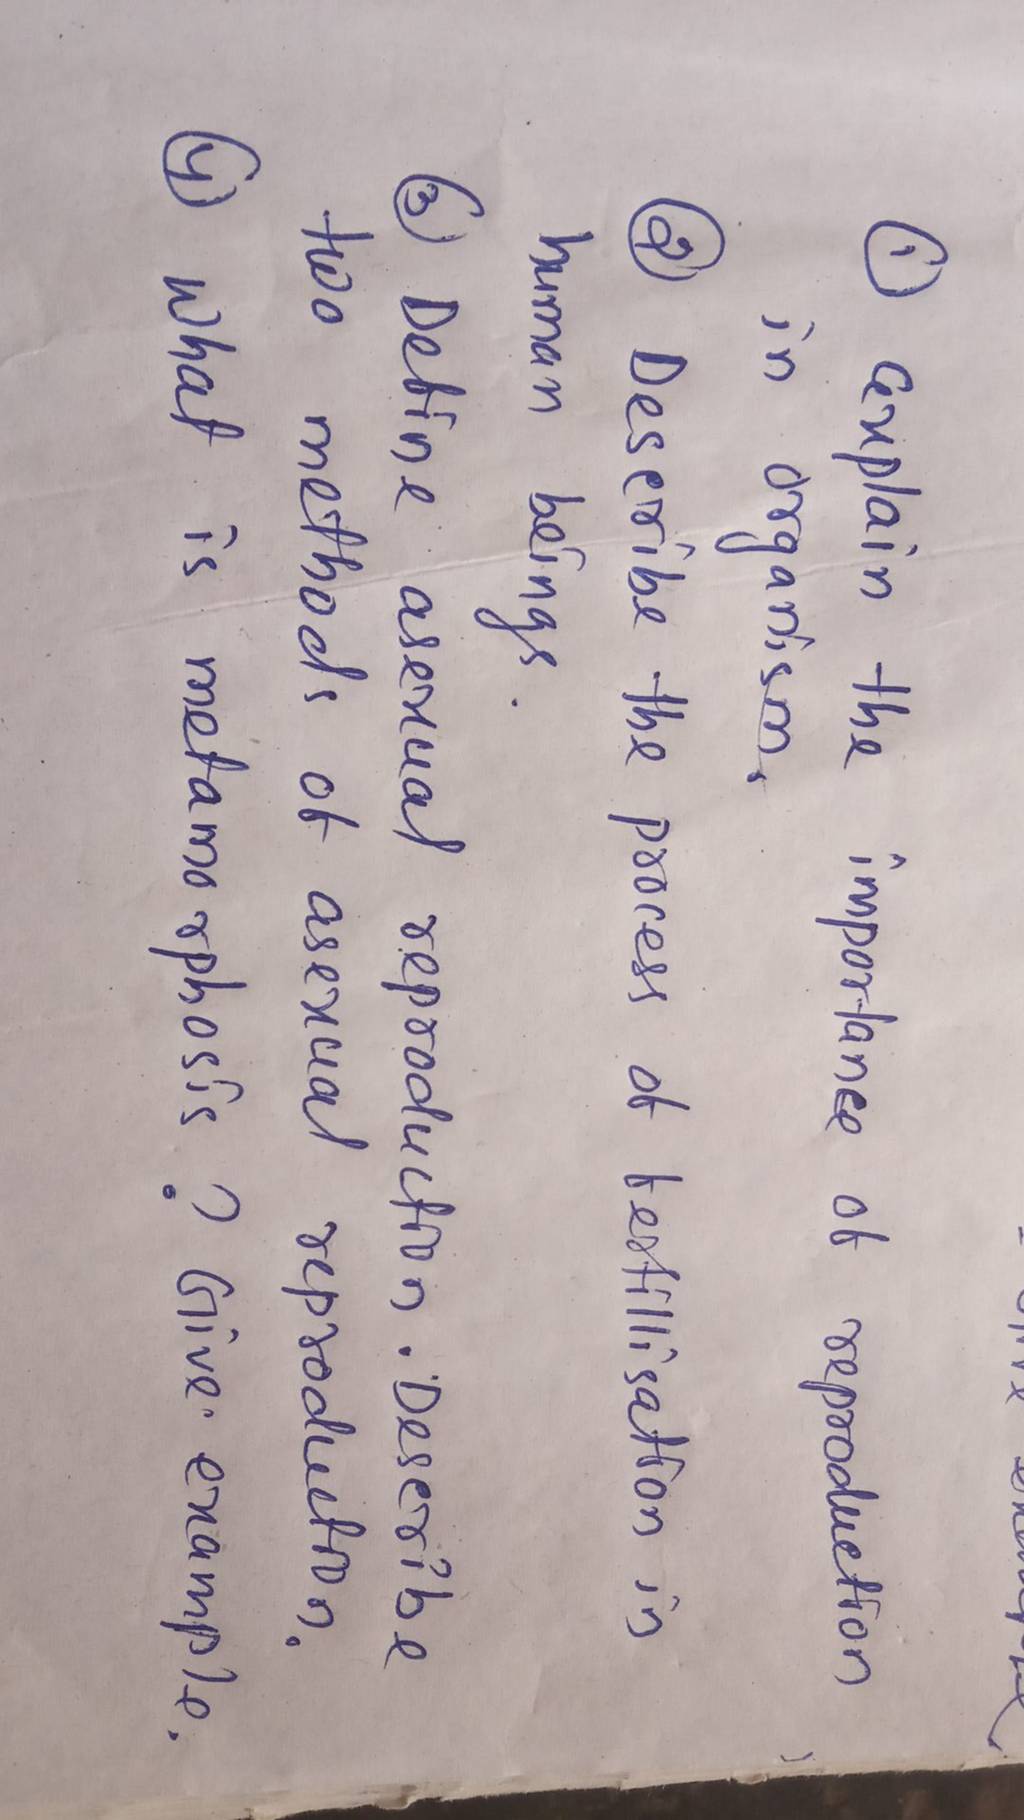 ① Explain the importance of reproduction
in organism.
② Describe the process of fertillisation in
human beings.
③ Define asexual reproduction. Describe
two methods of asexual reproduction.
④ What is metamorphosis? Give example.